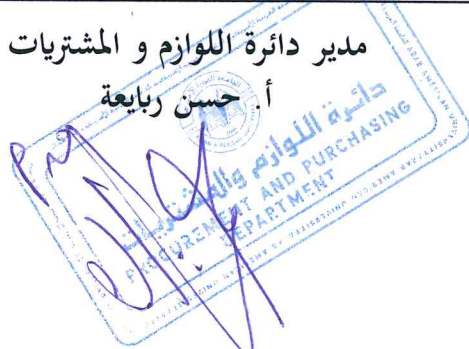 مدير دائرة اللوازم و المشتريات
أ. حسن ربايعة
دائرة اللوازم والمشتريات
PROCUREMENT AND PURCHASING
DEPARTMENT
ARAB AMERICAN UNIVERSITY